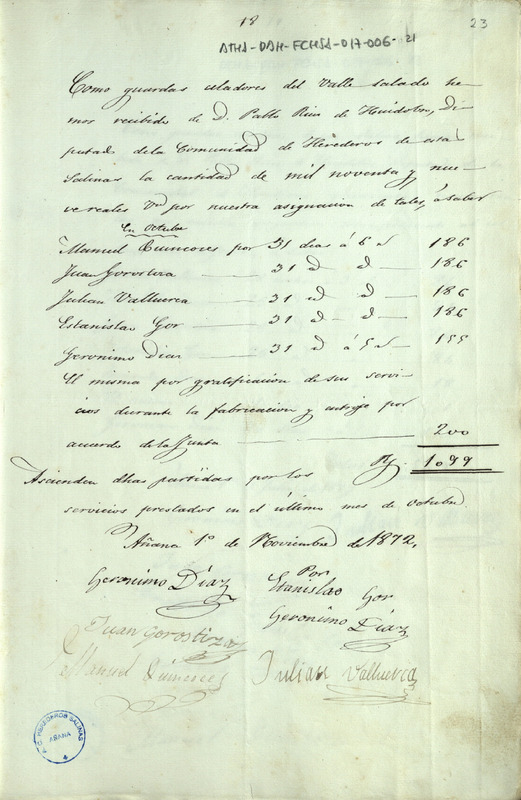 18
23
ATHA-DAH-FCHSA-017-006-21
Como guardas celadores del Valle salado he-
mos recibido de D. Pablo Ruiz de Huidobro, Di-
putado de la Comunidad de Herederos de esta
Salinas la cantidad de mil noventa y nue-
ve reales Vn por nuestra asignacion de tales, á saber
En Octubre
Manuel Quincoces por 31 dias á 6 rs 186
Juan Gorostiza 31 id id 186
Julian Valluerca 31 id id 186
Estanislao Gor 31 id id 186
Geronimo Diaz 31 id á 5 rs 155
El mismo por gratificacion de sus servi-
cios durante la fabricacion y entroje por
acuerdo de la Junta 200
Ascienden dhas partidas por los Rs 1.099
servicios prestados en el último mes de octubre
Añana 1º de Noviembre de 1872.
Geronimo Díaz
Por
Estanislao Gor
Geronimo Díaz
Juan Gorostiza
Manuel Quincoces
Julian Valluerca
HEREDEROS SALINAS
AÑANA